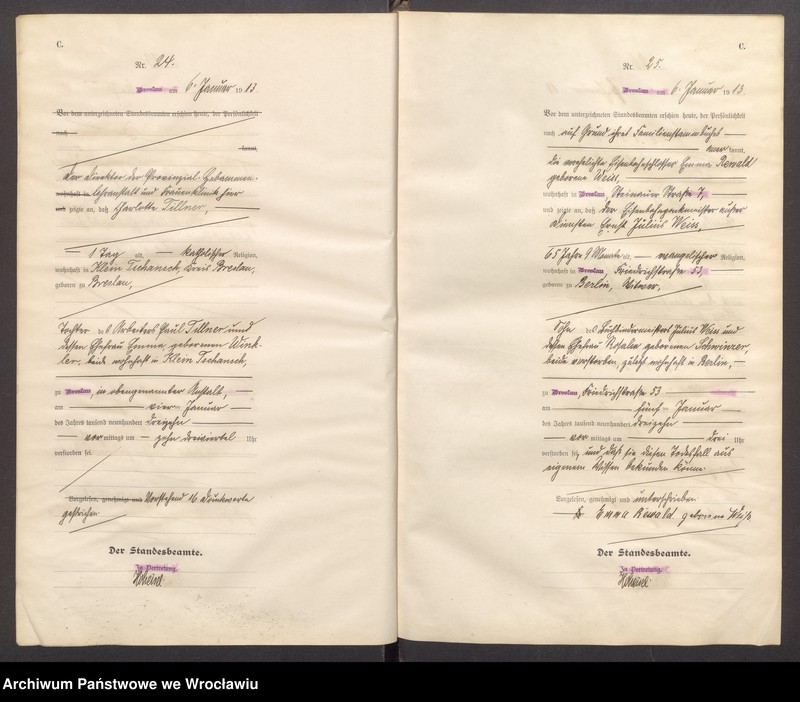 C.
Nr. 24.
Breslau am 6. Januar 1913.
Vor dem unterzeichneten Standesbeamten erschien heute, der Persönlichkeit
nach
kannt,
Der Direktor der Provinzial-Hebammen-
wohnhaft in Lehranstalt und Frauenklinik hier
und zeigte an, daß Charlotte Tellner,
1 Tag alt, katholischer Religion,
wohnhaft in Klein Tschansch, Kreis Breslau,
geboren zu Breslau,
Tochter des Arbeiters Paul Tellner und
dessen Ehefrau Emma, geborenen Wink-
ler, beide wohnhaft in Klein Tschansch,
zu Breslau, in obengenannter Anstalt,
am vier Januar
des Jahres tausend neunhundert dreizehn
vormittags um zehn dreiviertel Uhr
verstorben sei.
Vorgelesen, genehmigt und Vorstehend 16 Druckworte
gestrichen.
Der Standesbeamte.
In Vertretung.
C.
Nr. 25.
Breslau am 6. Januar 1913.
Vor dem unterzeichneten Standesbeamten erschien heute, der Persönlichkeit
nach auf Grund ihres Familienstammbuches
anerkannt,
die verehelichte Eisenbahnschlosser Emma Rewald
geborene Weiss,
wohnhaft in Breslau, Steinauer Straße 7,
und zeigte an, daß der Eisenbahnpackmeister außer
Diensten Ernst Julius Weiss,
65 Jahre 9 Monate alt, evangelischer Religion,
wohnhaft in Breslau, Friedrichstraße 53,
geboren zu Berlin, Witwer,
Sohn des Buchbindermeisters Julius Weiss und
dessen Ehefrau Rosalie geborenen Schwinzer,
beide verstorben, zuletzt wohnhaft in Berlin,
zu Breslau, Friedrichstraße 53
am fünf Januar
des Jahres tausend neunhundert dreizehn
vormittags um drei Uhr
verstorben sei, und daß sie diesen Todesfall aus
eigenem Wissen bekunden könne.
Vorgelesen, genehmigt und unterschrieben
Emma Rewald geborene Weiß
Der Standesbeamte.
In Vertretung.
Archiwum Państwowe we Wrocławiu